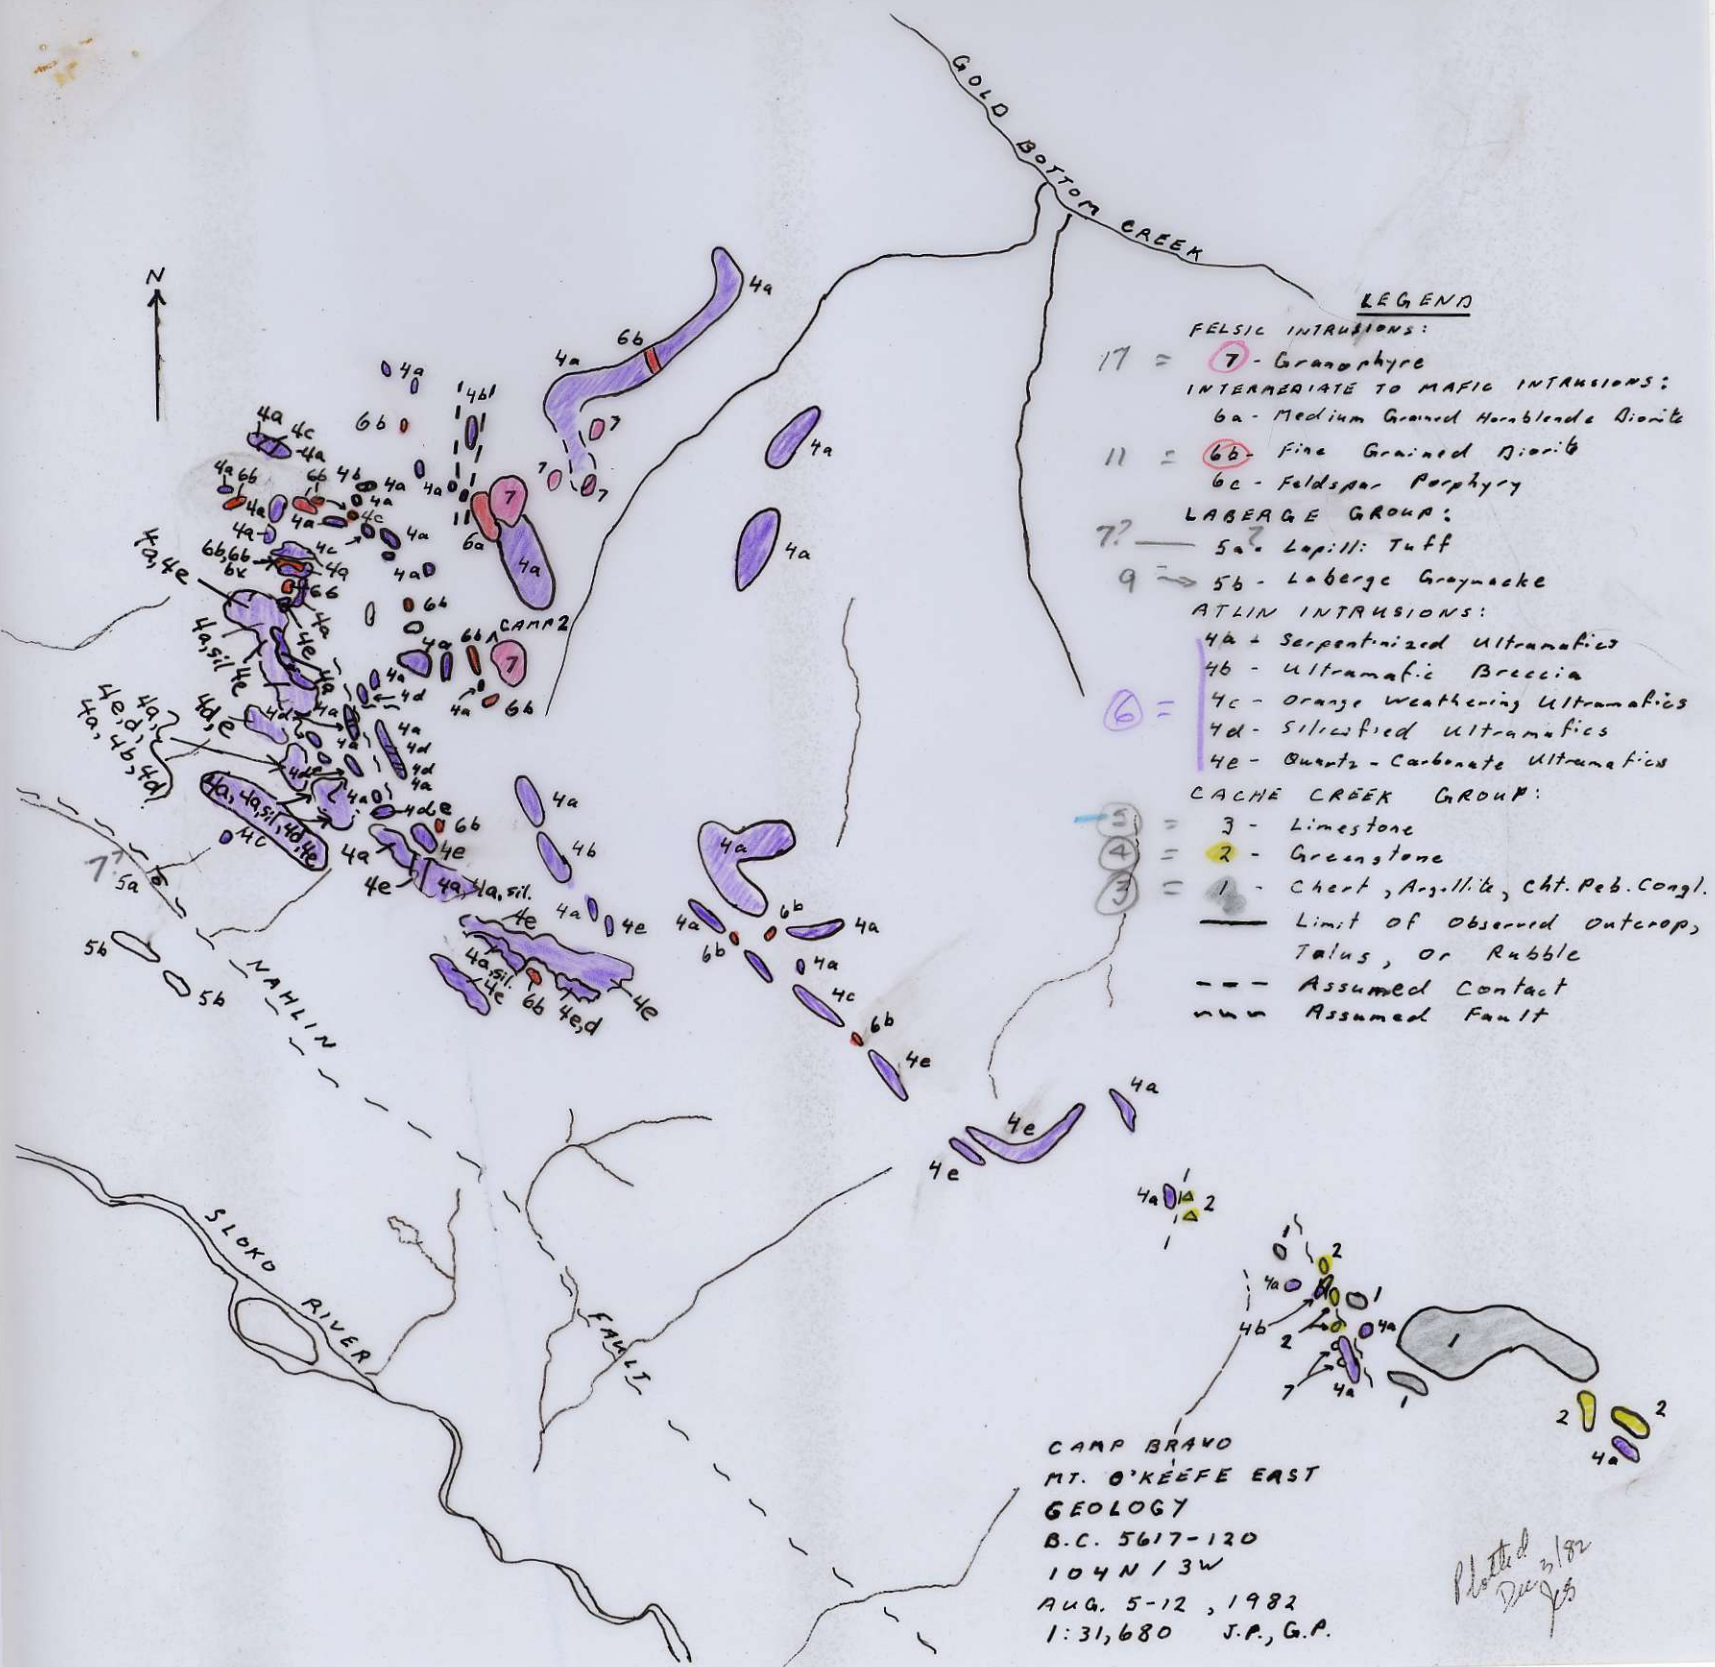 GOLD BOTTOM CREEK
N
LEGEND
FELSIC INTRUSIONS:
17 = 7 - Granophyre
INTERMEDIATE TO MAFIC INTRUSIONS:
6a - Medium Grained Hornblende Diorite
11 = 6b - Fine Grained Diorite
6c - Feldspar Porphyry
LABERGE GROUP:
7? — 5a? - Lapilli Tuff
9 => 5b - Laberge Graywacke
ATLIN INTRUSIONS:
4a - Serpentinized Ultramafics
4b - Ultramafic Breccia
6 = 4c - Orange Weathering Ultramafics
4d - Silicified Ultramafics
4e - Quartz-Carbonate Ultramafics
CACHE CREEK GROUP:
5 = 3 - Limestone
4 = 2 - Greenstone
3 = 1 - Chert, Argillite, Cht. Peb. Congl.
Limit of Observed Outcrop,
Talus, or Rubble
Assumed Contact
Assumed Fault
4a
6b
4a
4a
6b
4b
7
7
7
4a
4a
4a
4c
4a
4a
6b
6b
4b
4a
4a
4a
4a
4c
4a
4a
4c
4a
4a
6b,6b
bx
6b
6b
4a
4e
7
6a
4a
CAMP 2
4a
6b
7
4a
6b
4a,4e
4a,sil
4e
4a
4a
4d
4d,e
4d
4a
4a
4a
4d
4d
4a
4a,
4e,d,
4a,4b,4d
4de
4a
4de
6b
4a,4a,sil,4d,4e
4c
4a
4e
4e
4a
4a,sil.
4a
4b
4a
4e
4e
4a,sil.
4e
6b
4e,d
4e
7?
5a
5b
5b
4a
4a
6b
6b
4a
4a
4c
6b
4e
4e
4e
4a
NAHLIN FAULT
SLOKO RIVER
1
4a
2
1
1
2
4a
1
4b
2
4a
7
4a
1
1
2
2
4a
CAMP BRAVO
MT. O'KEEFE EAST
GEOLOGY
B.C. 5617-120
104N/3W
AUG. 5-12, 1982
1:31,680 J.P., G.P.
Plotted
Dec 3/82